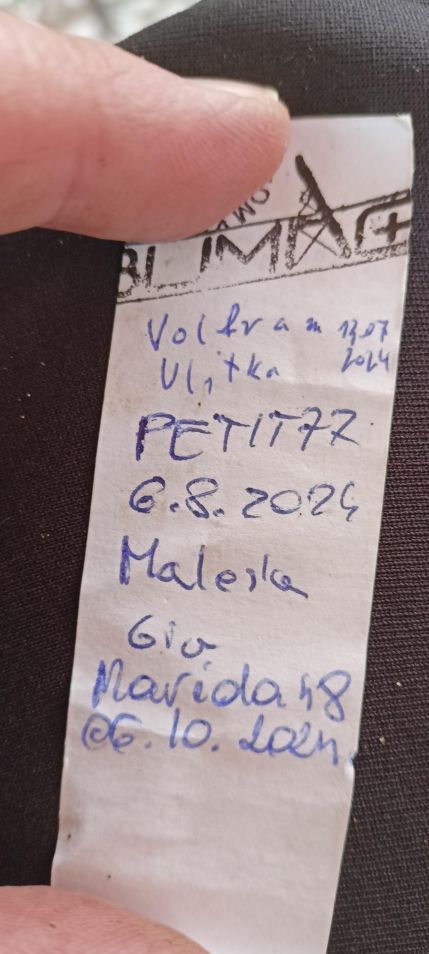 Volfram 13.07
Ulitka 2024
PETIT77
6.8.2024
Maleska
Gio
Marida48
06.10.2024.